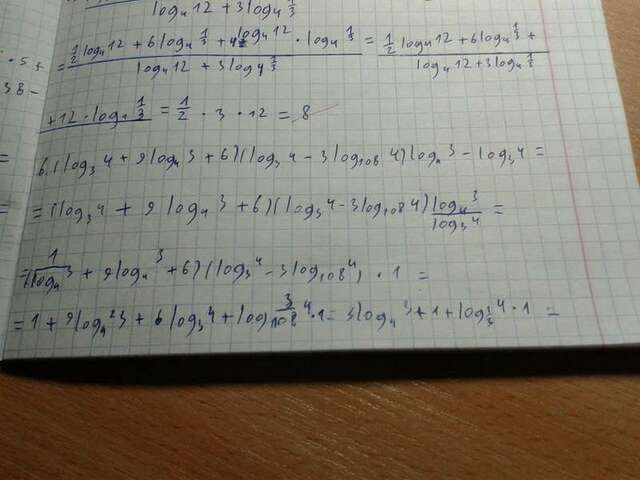 log₄12 + 3log₄ 1/3
= (1/2 log₄12 + 6log₄ 1/3 + 4^(log₄12) · log₄ 1/3) / (log₄12 + 3log₄ 1/3) = (1/2 log₄12 + 6log₄ 1/3 +
+12 · log₄ 1/3) / (log₄12 + 3log₄ 1/3) = 1/2 · 3 · 12 = 8
6. (log₃4 + 9log₄3 + 6)(log₃4 − 3log₁₀₈4)log₄3 − log₃4 =
= (log₃4 + 9log₄3 + 6)(log₃4 − 3log₁₀₈4) log₄3 / log₃4 =
= (1/log₄3 + 9log₄3 + 6)(log₃4 − 3log₁₀₈4) · 1 =
= 1 + 9log₄²3 + 6log₃4 + log 3/108 4 · 1 = 3log₄3 + 1 + log 4 · 1 =